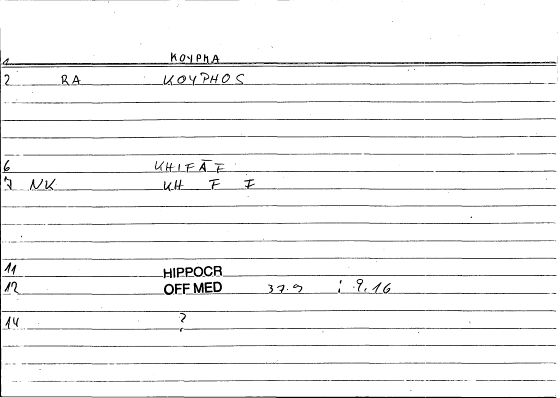 1 KOYPHA
2 RA KOYPHOS
6 KHIFĀF
7 NK KH F F
11 HIPPOCR
12 OFF MED 37.9 : 9,16
14 ?